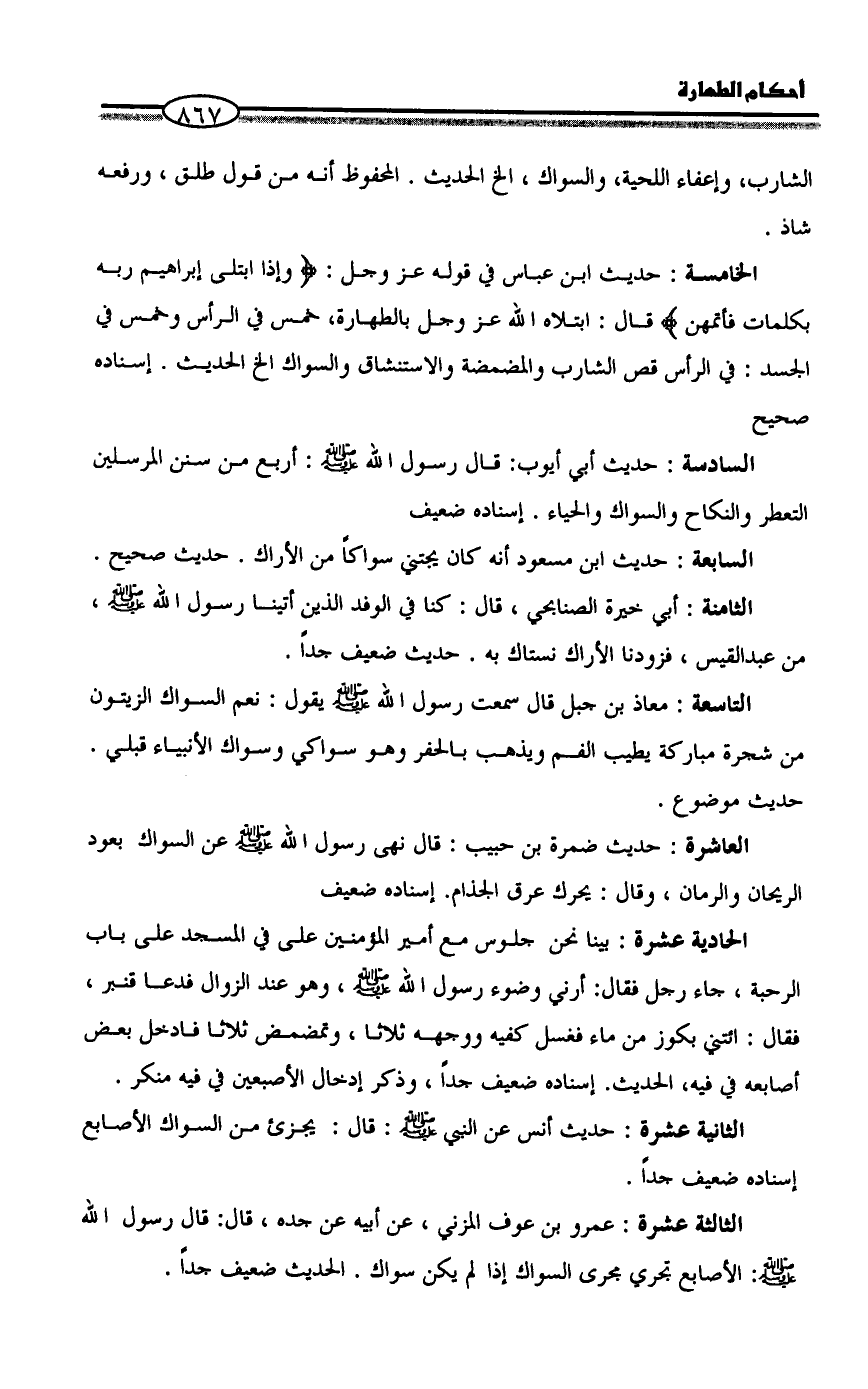 أحكام الطهارة
٨٦٧
الشارب، وإعفاء اللحية، والسواك ، الخ الحديث . المحفوظ أنه من قول طلق ، ورفعه
شاذ .
الخامسة : حديث ابن عباس في قوله عز وجل : ﴿ وإذا ابتلى إبراهيم ربه
بكلمات فأتمهن ﴾ قال : ابتلاه الله عز وجل بالطهارة، خمس في الرأس وخمس في
الجسد : في الرأس قص الشارب والمضمضة والاستنشاق والسواك الخ الحديث . إسناده
صحيح
السادسة : حديث أبي أيوب: قال رسول الله ﷺ : أربع من سنن المرسلين
التعطر والنكاح والسواك والحياء . إسناده ضعيف
السابعة : حديث ابن مسعود أنه كان يجتني سواكاً من الأراك . حديث صحيح .
الثامنة : أبي خيرة الصنابحي ، قال : كنا في الوفد الذين أتينا رسول الله ﷺ ،
من عبدالقيس ، فزودنا الأراك نستاك به . حديث ضعيف جداً .
التاسعة : معاذ بن جبل قال سمعت رسول الله ﷺ يقول : نعم السواك الزيتون
من شجرة مباركة يطيب الفم ويذهب بالحفر وهو سواكي وسواك الأنبياء قبلي .
حديث موضوع .
العاشرة : حديث ضمرة بن حبيب : قال نهى رسول الله ﷺ عن السواك بعود
الريحان والرمان ، وقال : يحرك عرق الجذام. إسناده ضعيف
الحادية عشرة : بينا نحن جلوس مع أمير المؤمنين علي في المسجد على باب
الرحبة ، جاء رجل فقال: أرني وضوء رسول الله ﷺ ، وهو عند الزوال فدعا قنبر ،
فقال : ائتني بكوز من ماء فغسل كفيه ووجهه ثلاثا ، وتمضمض ثلاثا فادخل بعض
أصابعه في فيه، الحديث. إسناده ضعيف جداً ، وذكر إدخال الأصبعين في فيه منكر .
الثانية عشرة : حديث أنس عن النبي ﷺ : قال : يجزئ من السواك الأصابع
إسناده ضعيف جداً .
الثالثة عشرة : عمرو بن عوف المزني ، عن أبيه عن جده ، قال: قال رسول الله
ﷺ: الأصابع تجري مجرى السواك إذا لم يكن سواك . الحديث ضعيف جداً .